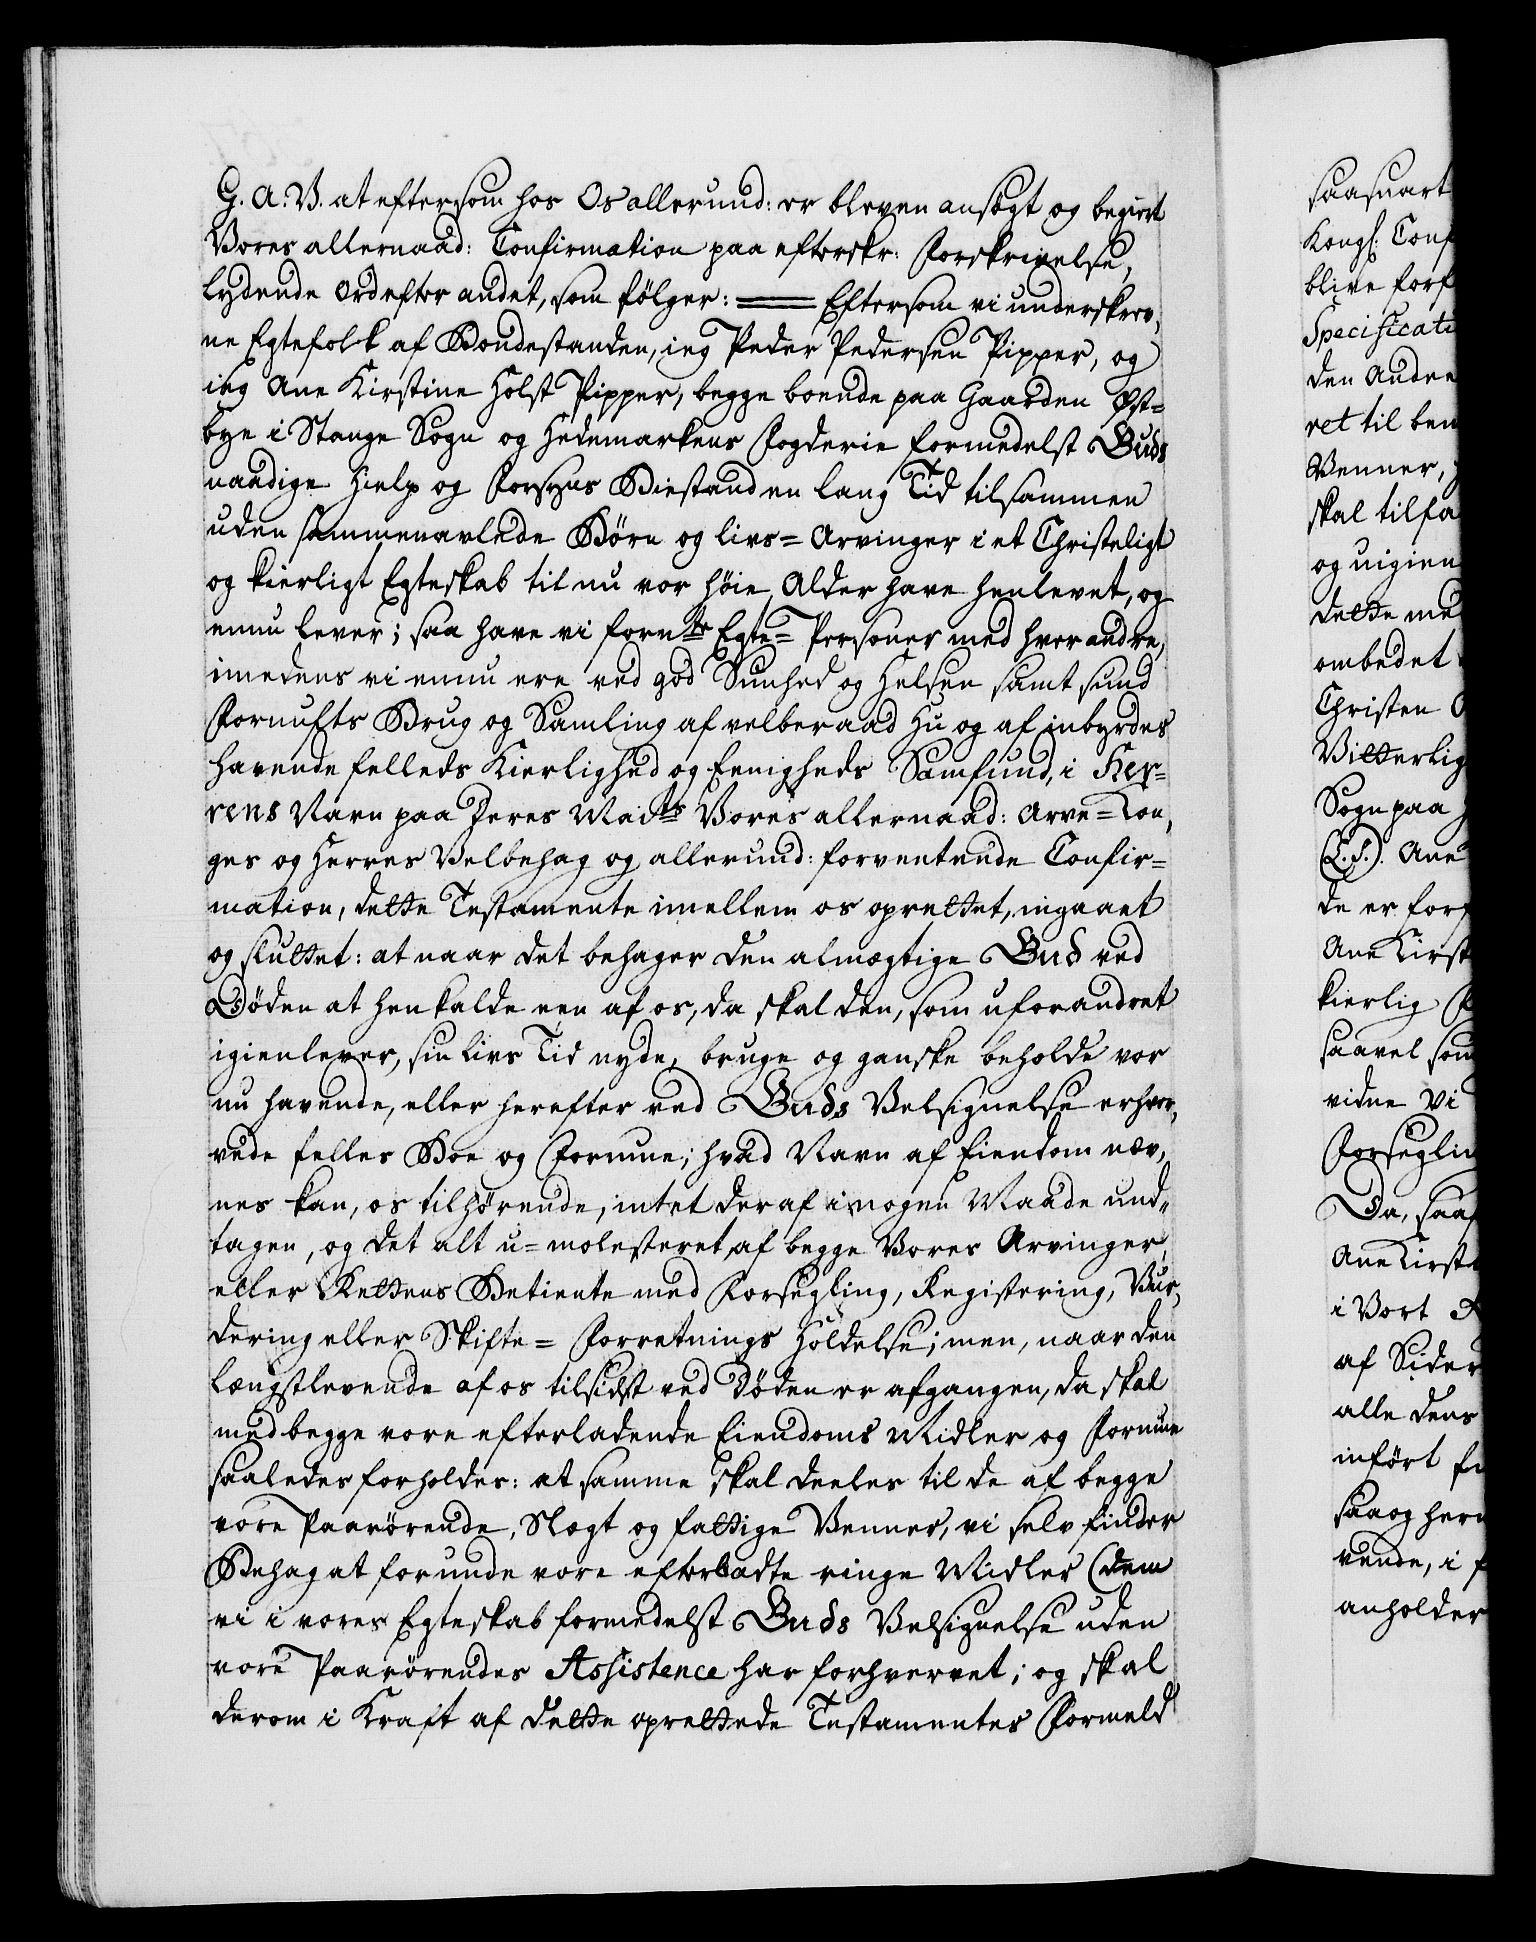 G. A. V. at eftersom hos Os allerund: er bleven ansøgt og begiert
Vores allernaad: Confirmation paa efterskr: Forskrivelse,
lydende Ord efter andet, som følger: Eftersom vi underskrev,
ne Egtefolk af Bondestanden, ieg Peder Pedersen Pipper, og
ieg Ane Kirstine Holst Pipper, begge boende paa Gaarden Øst=
bye i Stange Sogn og Hedemarkens Fogderie formedelst Guds
naadige Hielp og Forsyns Biestand en lang Tid tilsammen
uden sammenavlede Børn og livs= Arvinger i et Christeligt
og kierligt Egteskab til nu vor høie Alder have henlevet, og
ennu lever; saa have vi fornte Egte= Personer med hverandre,
imedens vi ennu ere ved god Sunhed og Helsen samt sund
Fornufts Brug og Samling af velberaad Hu og af inbyrdes
havende felleds Kierlighed og Eenigheds Samfund, i Her=
rens Navn paa Deres Maits Vores allernaad: Arve=Kon,
ges og Herres Velbehag og allerund: forventende Confir=
mation, dette Testamente imellem os oprettet, ingaaet
og sluttet: at naar det behager den almægtige Gud ved
Døden at henkalde een af os, da skal den, som uforandret
igienlever, sin livs Tid nyde, bruge og ganske beholde vor
nu havende, eller herefter ved Guds Velsignelse erhver,
vede felles Boe og Formue; hvad Navn af Eiendom næv,
nes kan, os tilhørende, intet deraf i nogen Maade und=
tagen, og det alt u= molesteret af begge Vores Arvinger,
eller Rettens Betiente med Forsegling, Registering, Vur,
dering eller Skifte= Forretnings Holdelse; men, naar den
længstlevende af os tilsidst ved Døden er afgangen, da skal
med begge vore efterladende Eiendoms Midler og Formue
saaledes forholdes: at samme skal deeles til de af begge
vore Paarørende, Slegt og fattige Venner, vi selv finder
Behag at forunde vore efterladte ringe Midler (dem
vi i vores Egteskab formedelst Guds Velsignelse uden
vore Paarørendes Assistence har forhvervet; og skal
derom i Kraft af dette oprettede Testamentes Formeld
saasnart
Kongl: Conf
blive forf
Specificati
den Anden
ret til ben
Venner,
skal tilfa
og uigien
dette me
ombedet
Christen
Vitterlig
Sogn paa
(L. S.). Ane
de er forf
Ane Kirst
kierlig
saavel som
vidne Vi
Forseglin
Da, saa
Ane Kirst
i Vort
af Sider
alle dens
inført
saaog her
vende, i
anholder